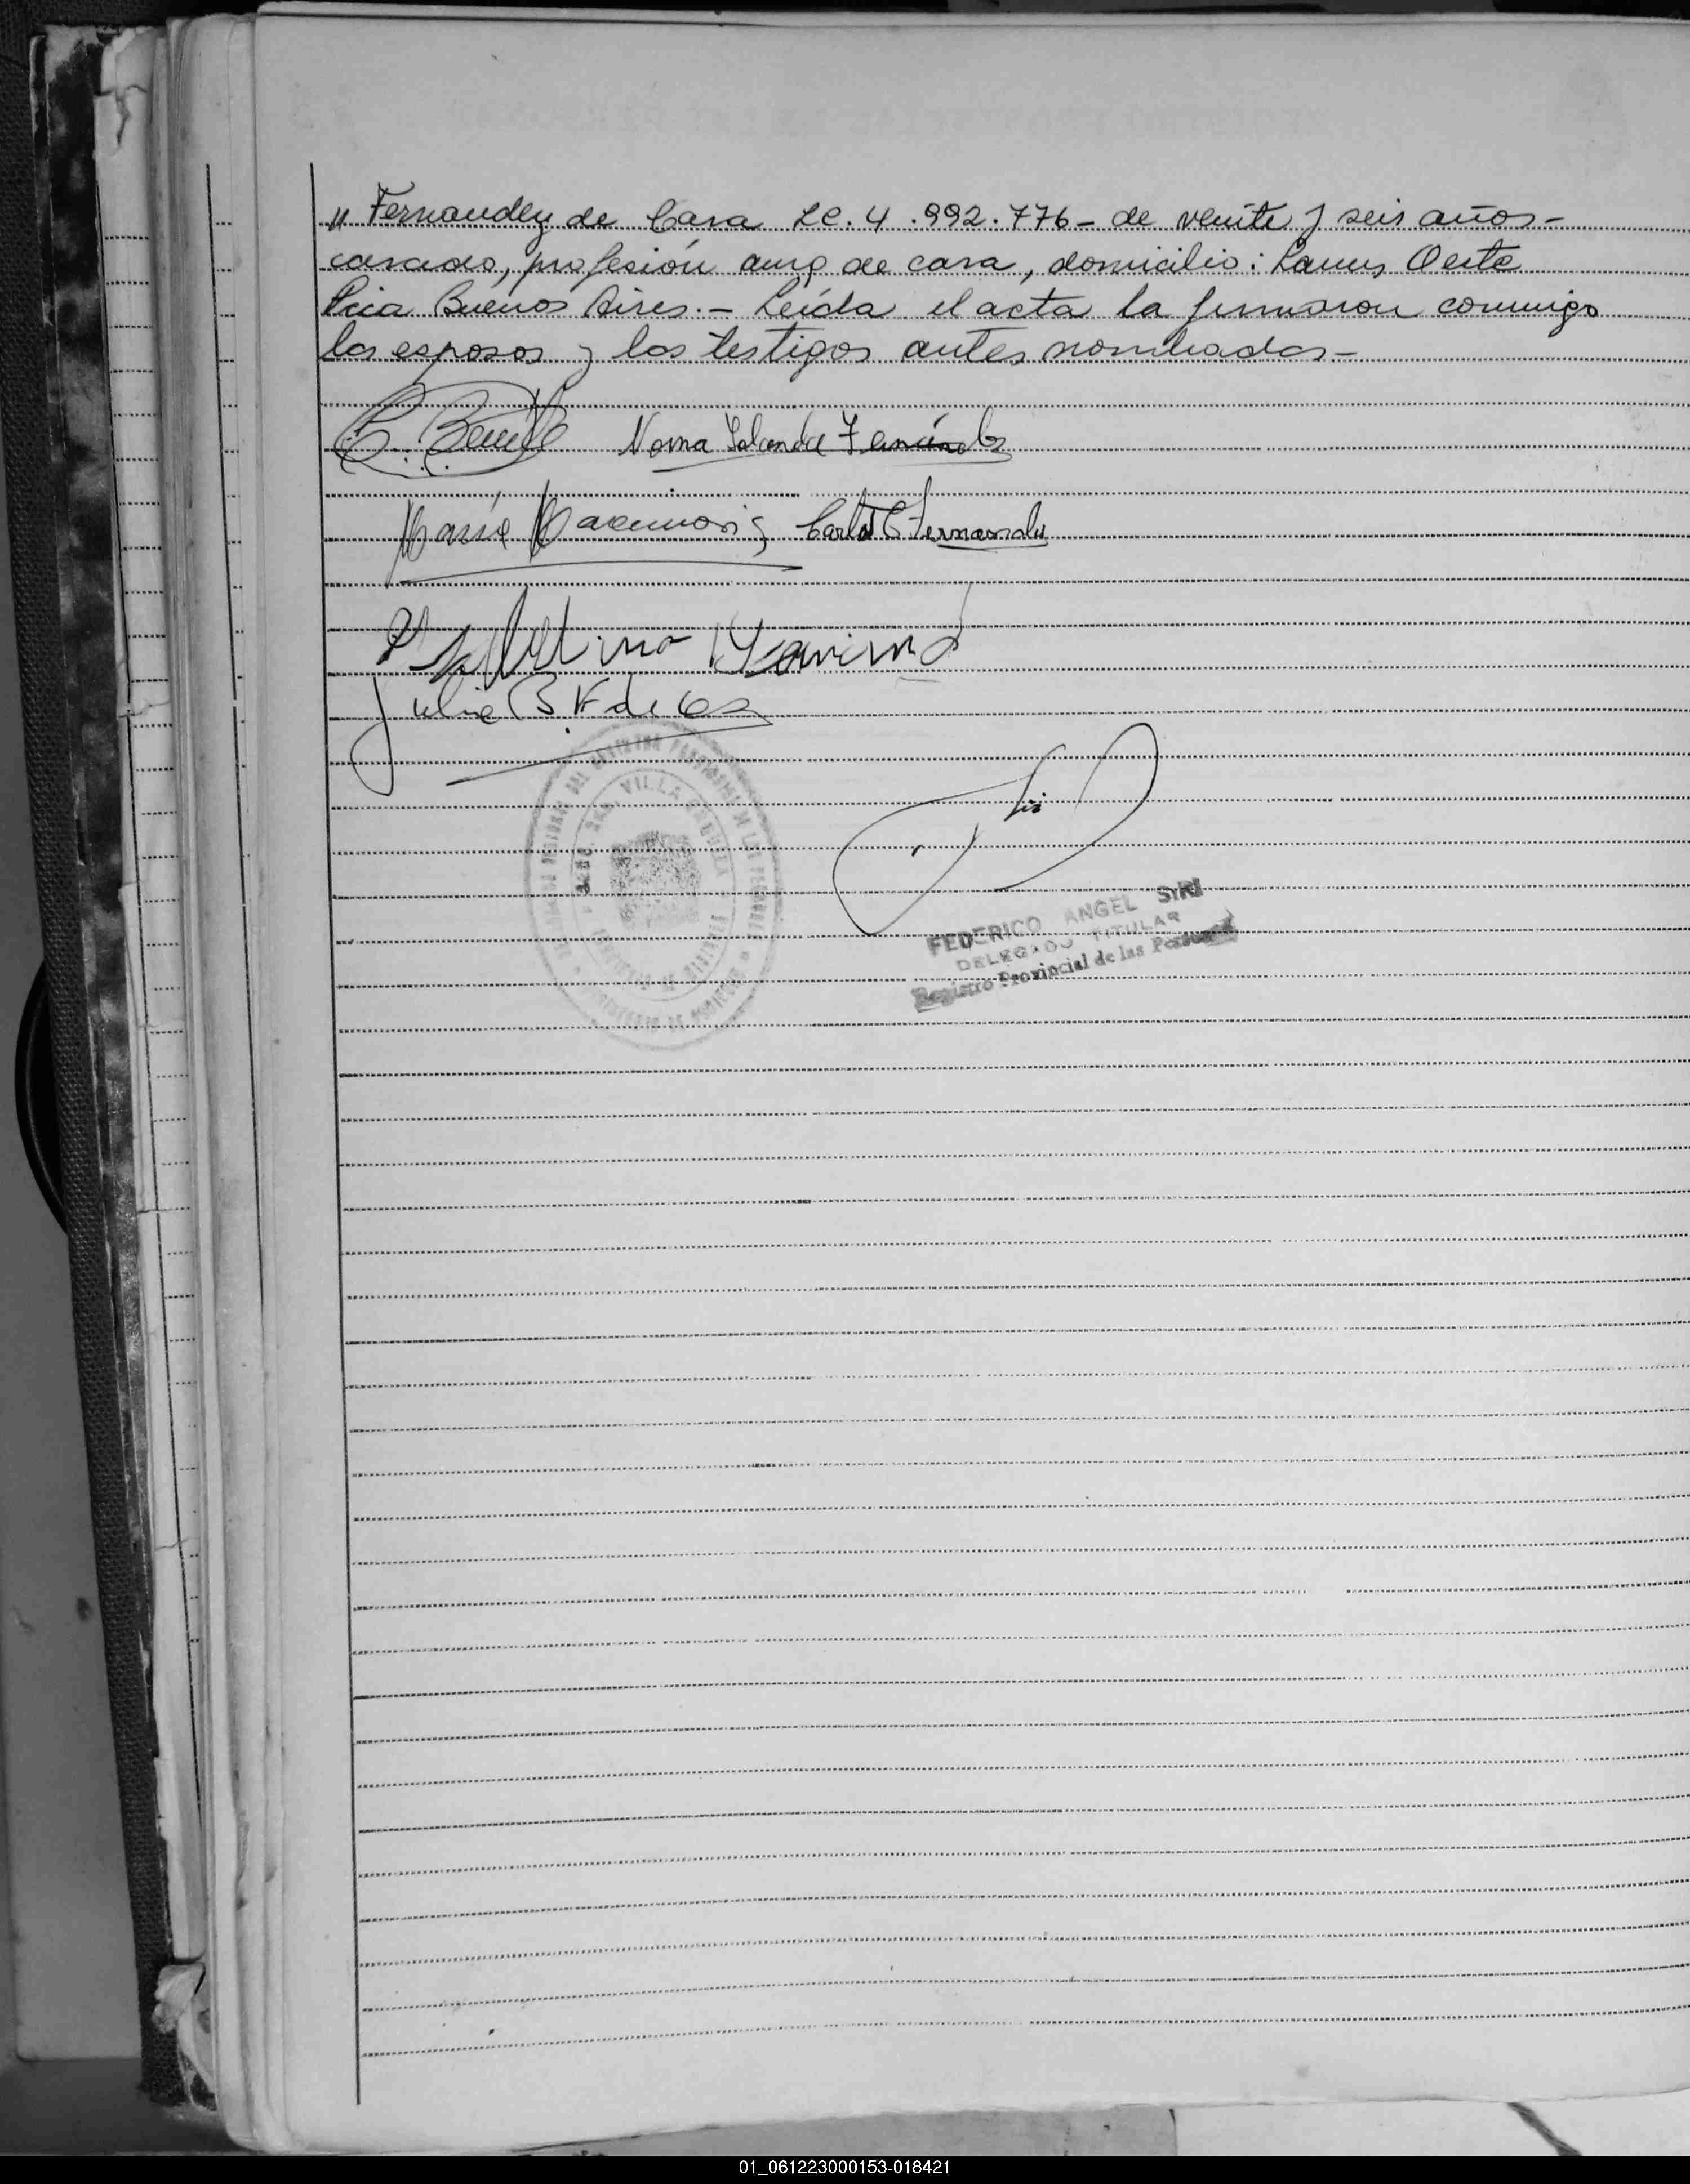 " Fernandez de Casa LC. 4.992.776- de veinte y seis años-
casado, profesión ama de casa, domicilio: Lanus Oeste
Pcia Buenos Aires.- Leída el acta la firmaron conmigo
los esposos y los testigos antes nombrados-
Norma Yolanda Fernández
María Carlos C Fernandez
Julia B. F de
VILLA
FEDERICO ANGEL SIRI
DELEGADO TITULAR
Registro Provincial de las Personas
01_061223000153-018421